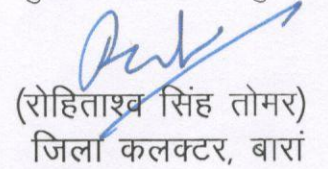 (रोहिताश्व सिंह तोमर)
जिला कलक्टर, बारां